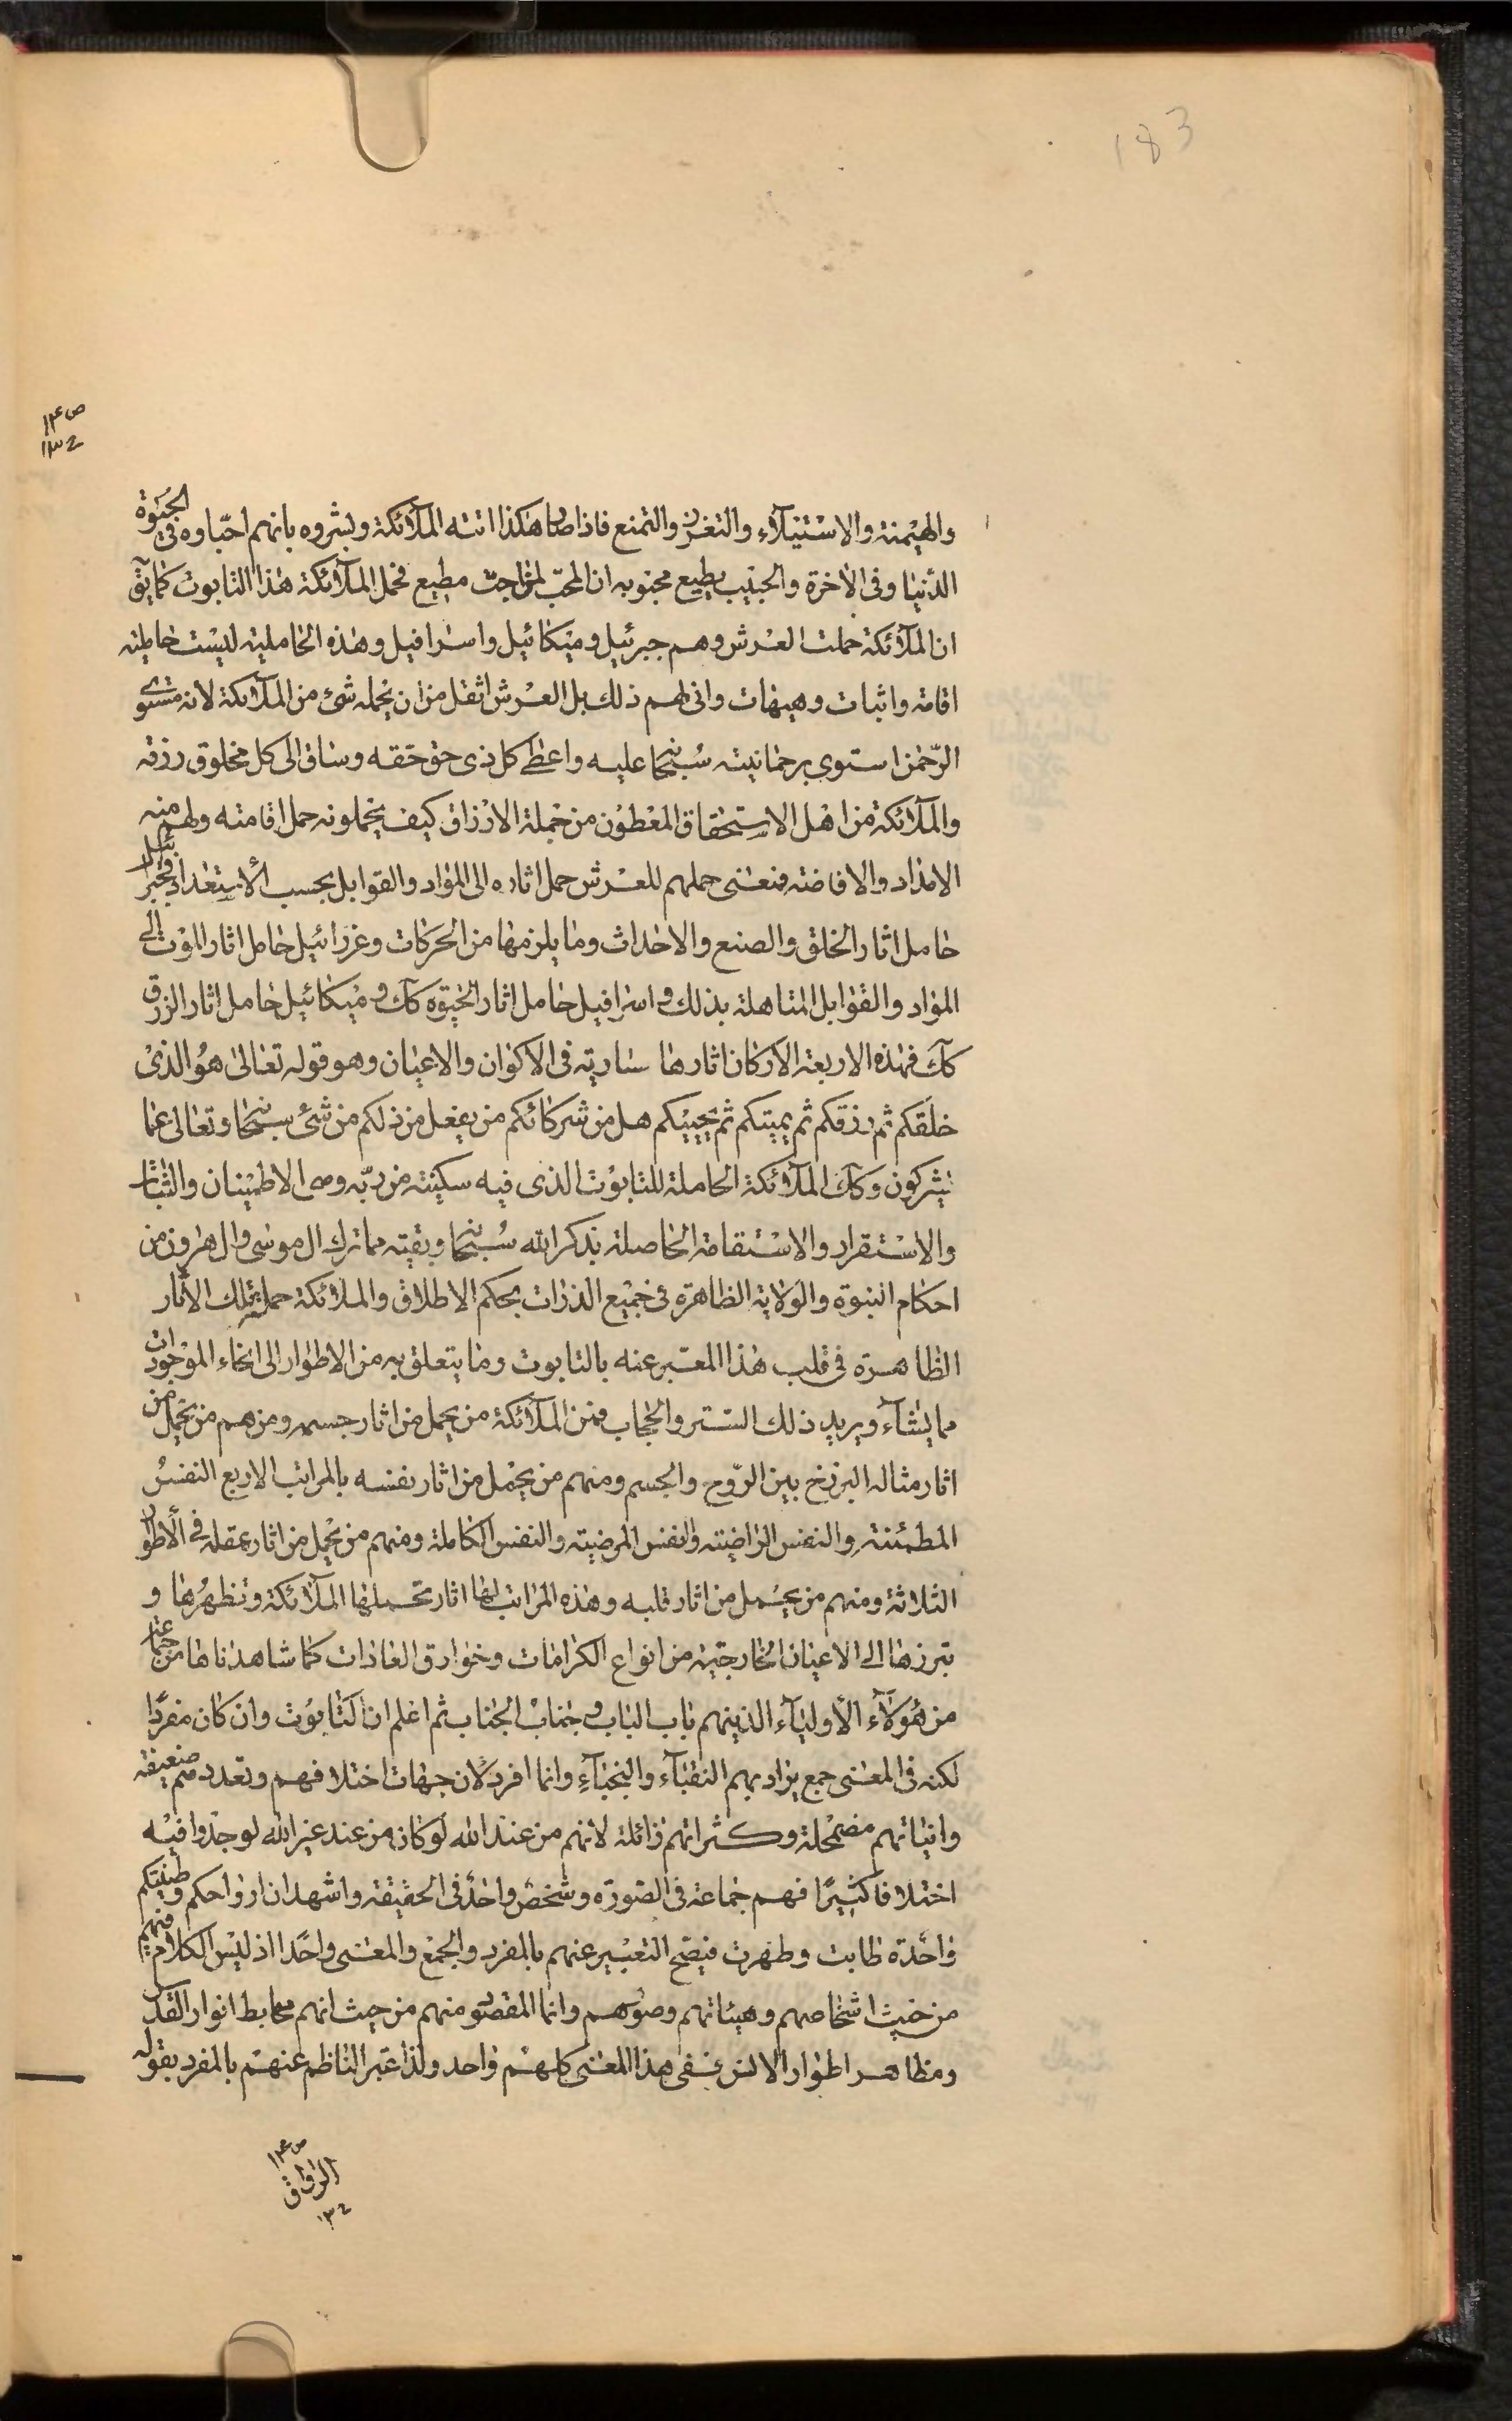 183
ص ١٣٤
١٣٤
والهيمنة والاستيلآء والتعزز والتمنع فاذا صار هكذا اتته الملآئكة وبشروه بانهم احباوه فى الحيوة
الدنيا وفى الاخرة والحبيب يطيع محبوبه ان المحب لمن احب مطيع فحمل الملآئكة هذا التابوت كما يق
ان الملآئكة حملت العرش وهم جبرئيل وميكائيل واسرافيل وهذه الحاملية ليست حاملية
اقامة واثبات وهيهات وانى لهم ذلك بل العرش اثقل من ان يحمله شئ من الملآئكة لانه مستوى
الرحمن استوى برحمانيته سبحانه عليه واعطى كل ذى حق حقه وساق الى كل مخلوق رزقه
والملآئكة من اهل الاستحقاق المعطون من جملة الارزاق كيف يحملونه حمل اقامته ولهم منه
الامداد والافاضة فمعنى حملهم للعرش حمل اثاره الى المواد والقوابل بحسب الاستعداد فجبرئيل
حامل اثار الخلق والصنع والاحداث وما يلزمها من الحركات وعزرائيل حامل اثار الموت الى
المواد والقوابل المتاهلة بذلك واسرافيل حامل اثار الحيوة كآك وميكائيل حامل اثار الرزق
كآك فهذه الاربعة الاركان اثارها سارية فى الاكوان والاعيان وهو قوله تعالى هو الذى
خلقكم ثم رزقكم ثم يميتكم ثم يحييكم هل من شركائكم من يفعل من ذلكم من شئ سبحانه وتعالى عما
يشركون وكآك الملآئكة الحاملة للتابوت الذى فيه سكينة من ربه وهى الاطمينان والثبات
والاستقرار والاستقامة الحاصلة بذكر الله سبحانه وبقية مما ترك ال موسى وال هرون من
احكام النبوة والولاية الظاهرة فى جميع الذرات بحكم الاطلاق والملائكة حملة تلك الاثار
الظاهرة فى قلب هذا المعتبر عنه بالتابوت وما يتعلق به من الاطوار الى انحاء الموجودات
مما يشآء ويريد ذلك الستر والحجاب فمن الملآئكة من يحمل من اثار جسمه ومنهم من يحمل من
اثار مثاله البرزخ بين الروح والجسم ومنهم من يحمل من اثار نفسه بالمراتب الاربع النفس
المطمئنة والنفس الراضية والنفس المرضية والنفس الكاملة ومنهم من يحمل من اثار عقله فى الاطوار
الثلاثة ومنهم من يحمل من اثار قلبه وهذه المراتب لها اثار تحملها الملآئكة وتظهرها و
تبرزها الى الاعيان الخارجية من انواع الكرامات وخوارق العادات كما شاهدناها من جماعة
من هؤلآء الاوليآء الذينهم باب الباب وجناب الجناب ثم اعلم ان التابوت وان كان مفردا
لكنه فى المعنى جمع يراد بهم النقبآء والنجبآء وانما افرد لان جهات اختلافهم وتعددهم ضعيفة
وانياتهم مضمحلة وكثراتهم زائلة لانهم من عند الله لو كان من عند غير الله لوجدوا فيه
اختلافا كثيرا فهم جماعة فى الصورة وشخص واحد فى الحقيقة واشهد ان ارواحكم وطينتكم
واحدة طابت وطهرت فيصح التعبير عنهم بالمفرد والجمع والمعنى واحد اذ ليس الكلام فيهم
من حيث اشخاصهم وهيئاتهم وصورهم وانما المقصود منهم من حيث انهم مهابط انوار القدس
ومظاهر اطوار الانس ففى هذا المعنى كلهم واحد ولذا عبر الناظم عنهم بالمفرد بقوله
ص ١٣٤
الرواق
١٣٤